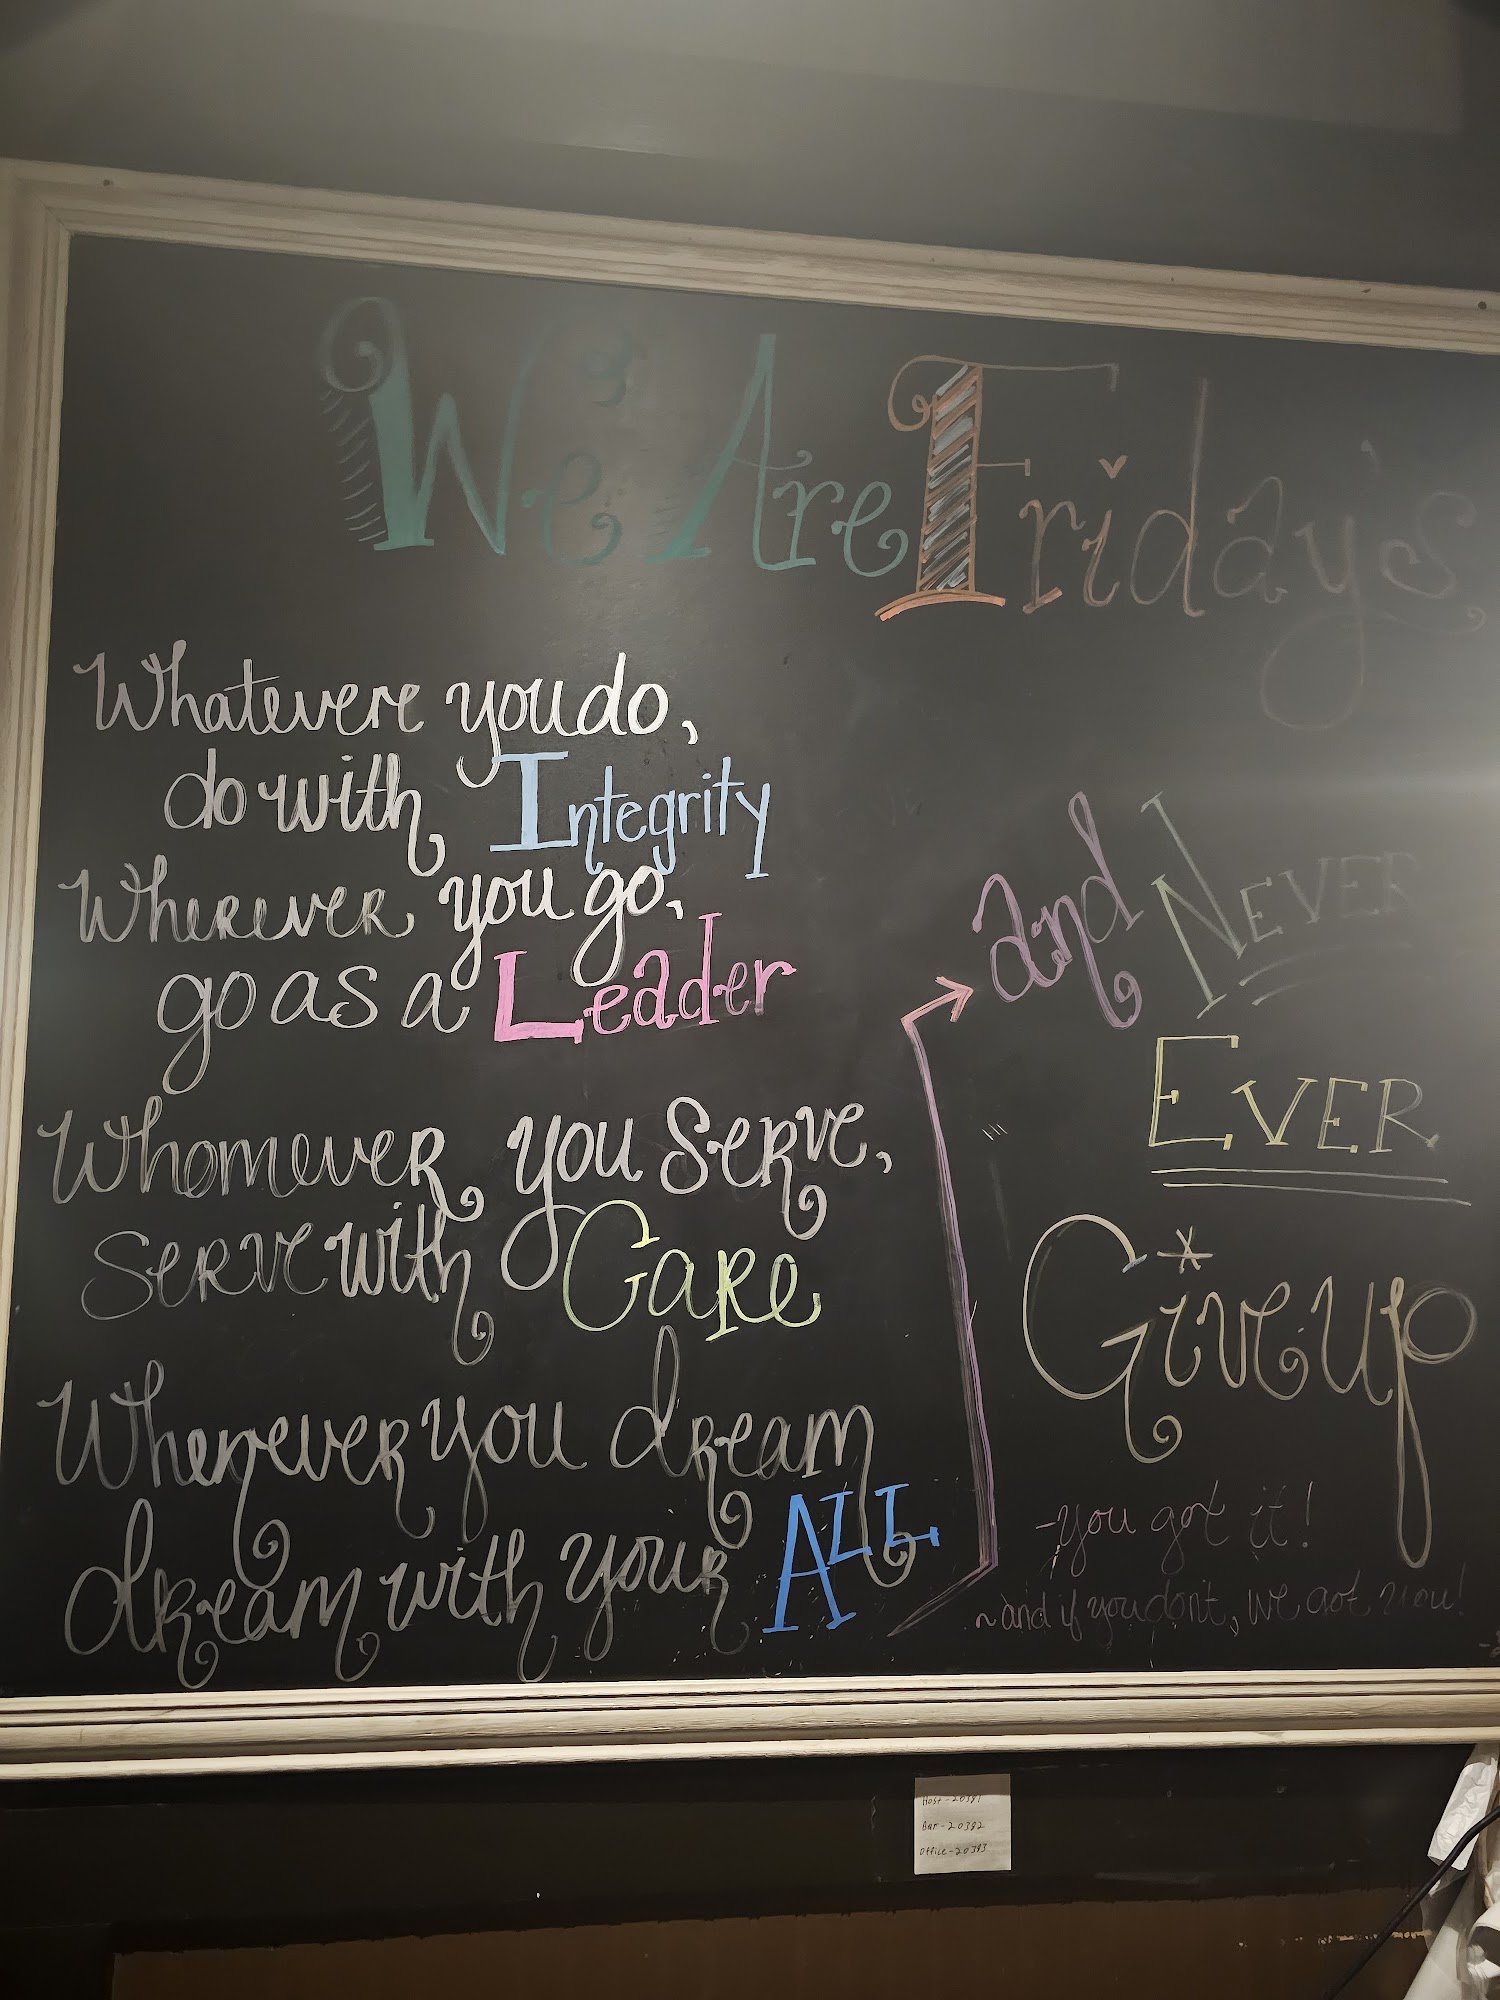 We Are Friday's
Whatevere you do,
do with Integrity
Wherever you go,
go as a Leader
Whomever you serve,
serve with Care
Whenever you dream
dream with your ALL
and NEVER
EVER
Give up
-you got it!
~and if you don't, we got you!
Host-20381
Bar-20382
Office-20383